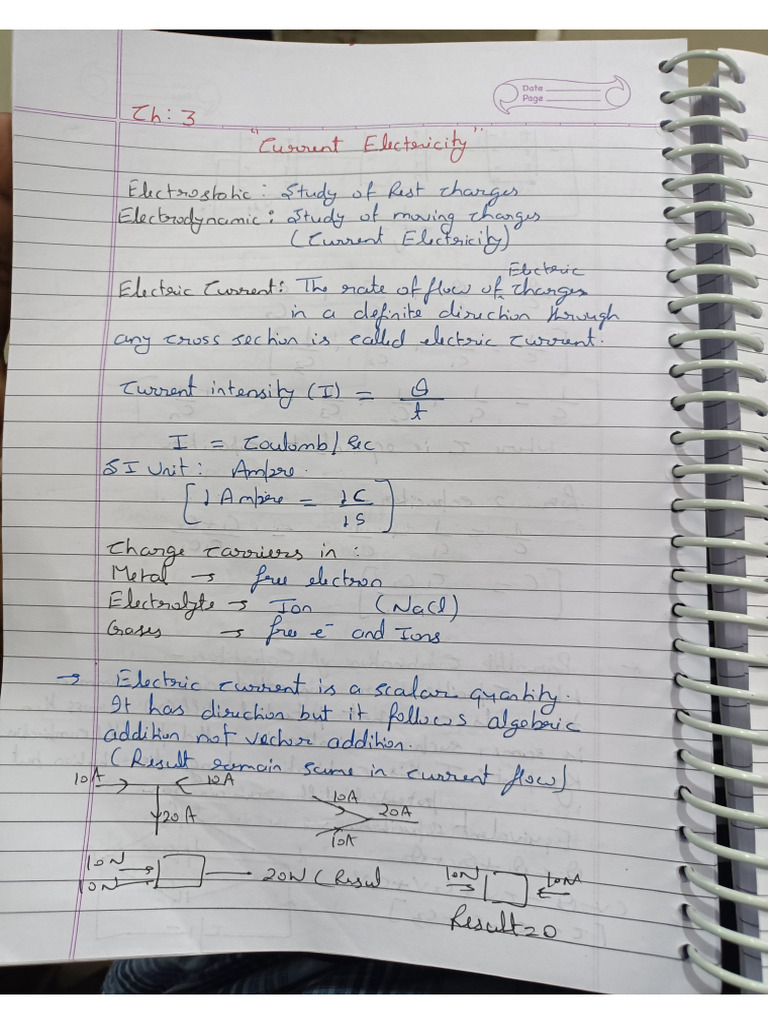 Date
Page
Ch: 3
"Current Electricity"
Electrostatic: Study of Rest charges
Electrodynamic: Study of moving charges
(Current Electricity)
Electric
Electric Current: The rate of flow of charges
in a definite direction through
any cross section is called electric current.
Current intensity (I) = Q/t
I = Coulomb/Sec
SI Unit: Ampere.
[1 Ampere = 1C/1S]
Charge Carriers in :
Metal → free electron
Electrolyte → Ion (NaCl)
Gases → free e⁻ and Ions
→ Electric current is a scalar quantity.
It has direction but it follows algebric
addition not vector addition.
(Result remain same in current flow)
10A 10A 10A
20A 20A
10A
10N 10N 10N
10N 20N (Resul
Result=0